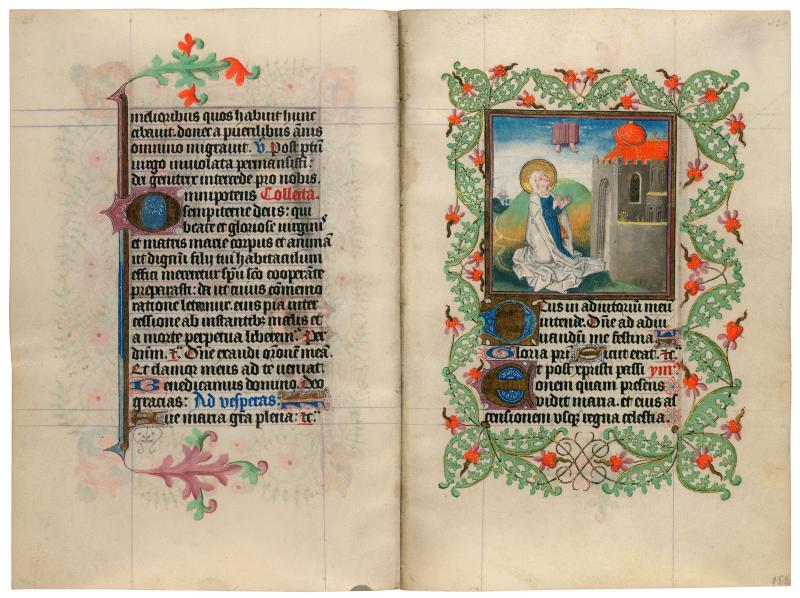 melioribus quos habuit hunc
cibavit. donec a puerilibus ānis
omnino migravit. v̄. Post ptū
virgo inviolata permansisti:
dei genitrix intercede pro nobis.
Omnipotens Collecta.
sempiterne deus: qui
beate et gloriose virginis
et matris marie corpus et animā
ut dignū filij tui habitaculum
effici mereretur spū scō cooperāte
preparasti: da ut cuius cōmemo
ratione letamur. eius pia inter
cessione ab instantibʒ malis et
a morte perpetua liberem̄. Per
Dn̄e exaudi orōnem meā.
Et clamor meus ad te veniat:
Benedicamus domino. Deo
gracias: Ad vesperas:
Ave maria grā plena: ⁊c̄.
Deus in adiutorium meū
intende. Dn̄e ad adiu
vandū me festina.
Gloria pr̄i Sicut erat. ⁊c̄.
post xpristi passi ym̄
onem quam presens
vidit maria. et eius as
censionem usqʒ regna celestia.